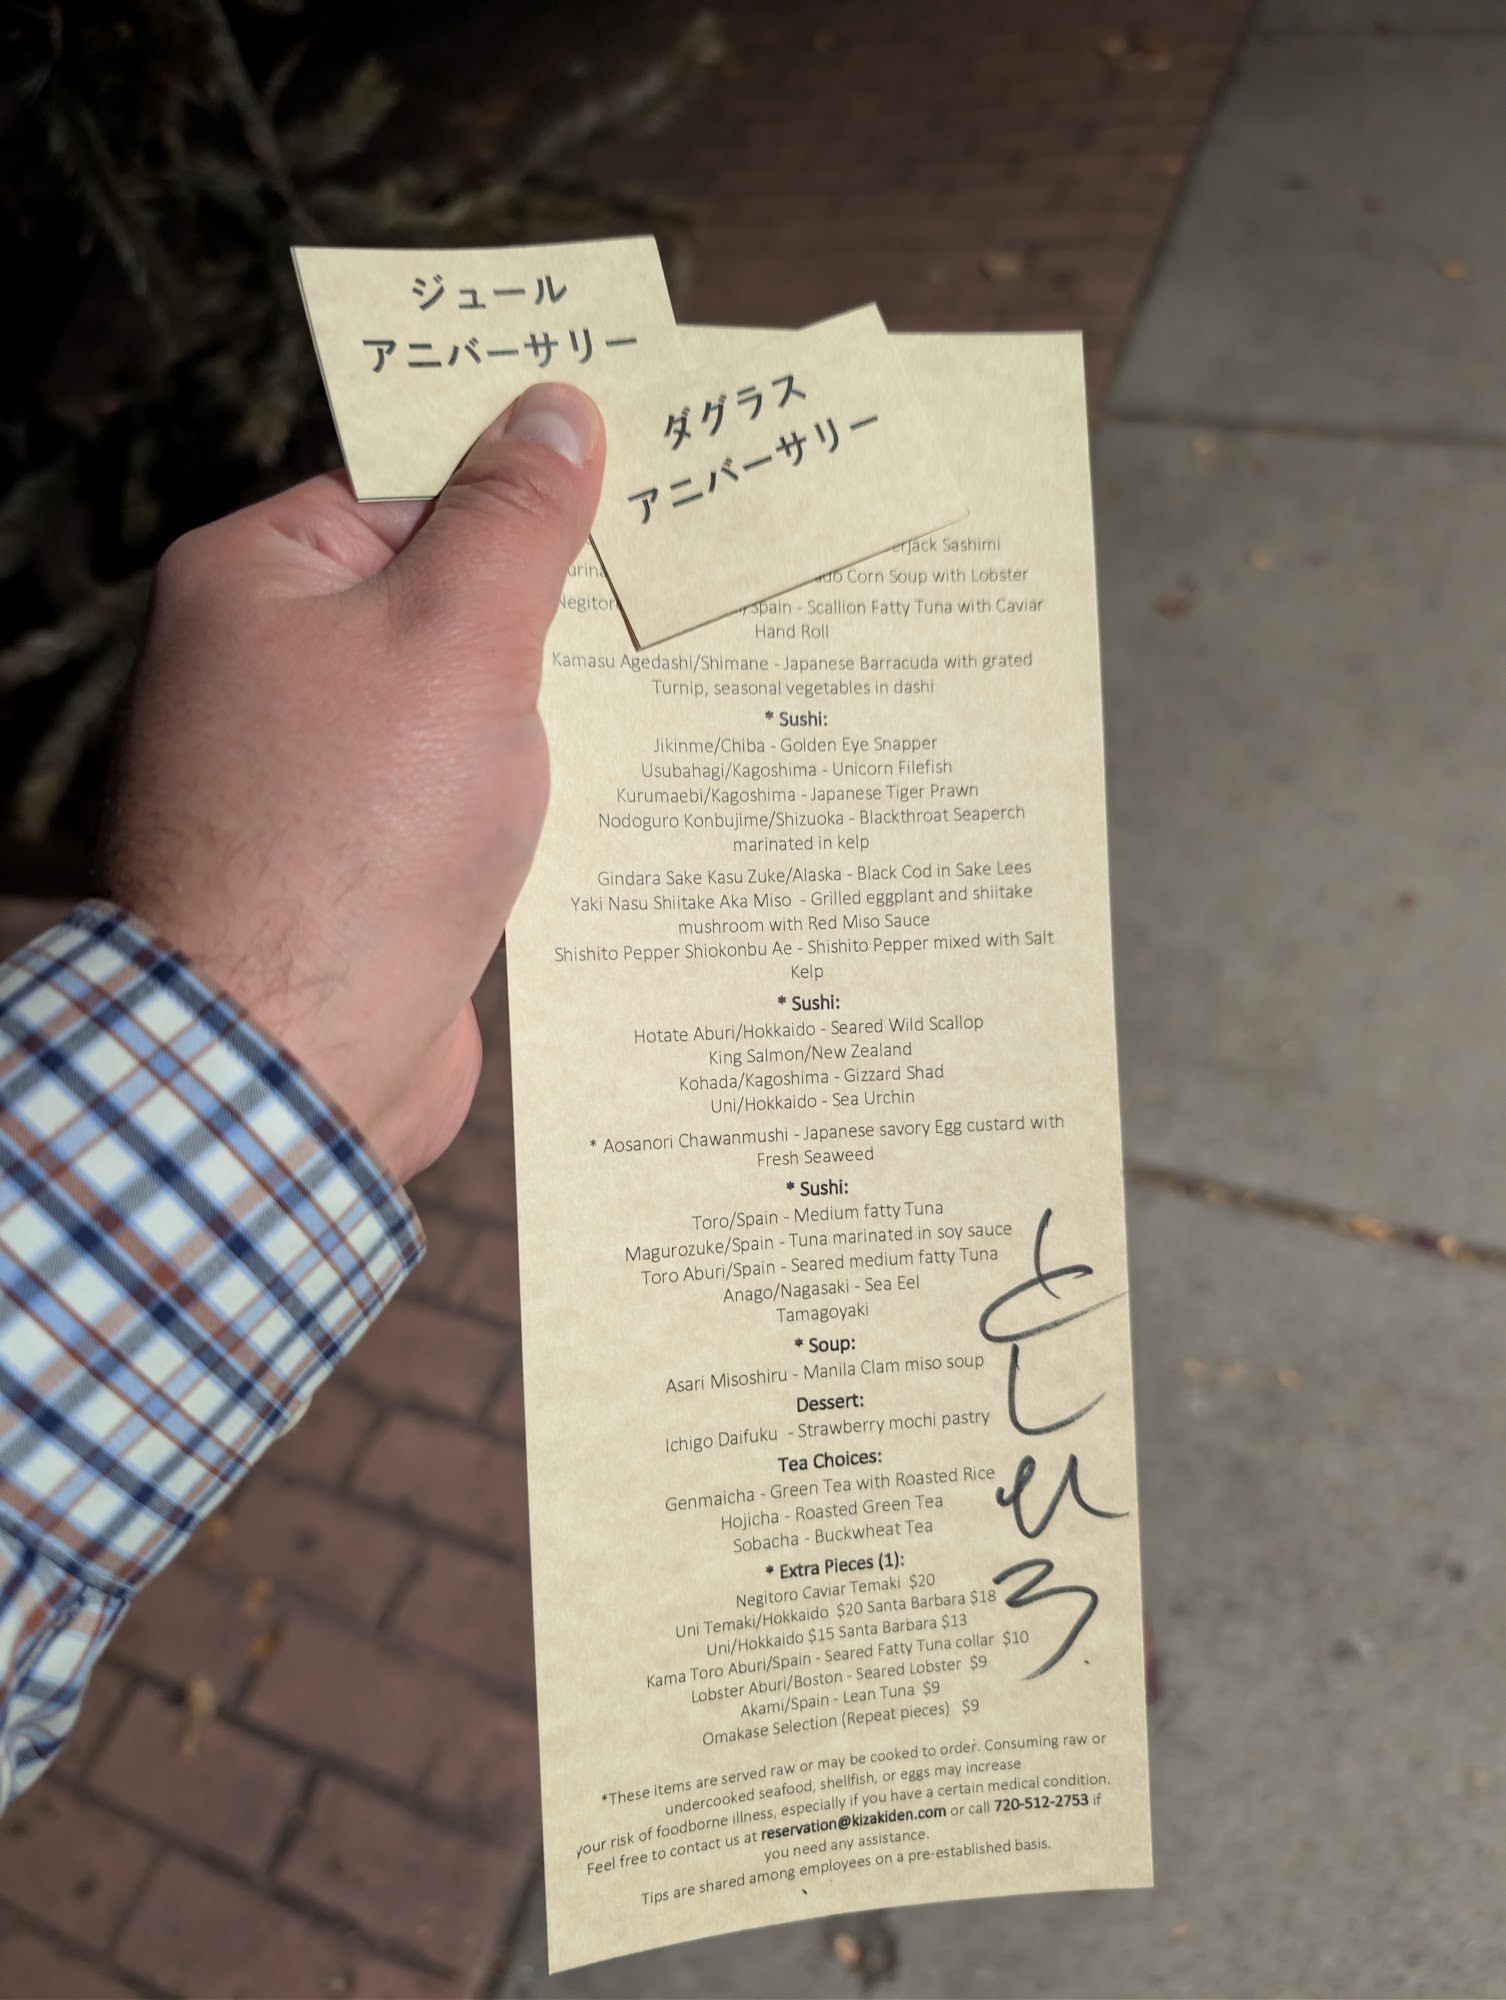 ジュール
アニバーサリー
ダグラス
アニバーサリー
Sashimi
Corn Soup with Lobster
Spain - Scallion Fatty Tuna with Caviar
Hand Roll
Kamasu Agedashi/Shimane - Japanese Barracuda with grated
Turnip, seasonal vegetables in dashi
* Sushi:
Jikinme/Chiba - Golden Eye Snapper
Usubahagi/Kagoshima - Unicorn Filefish
Kurumaebi/Kagoshima - Japanese Tiger Prawn
Nodoguro Konbujime/Shizuoka - Blackthroat Seaperch
marinated in kelp
Gindara Sake Kasu Zuke/Alaska - Black Cod in Sake Lees
Yaki Nasu Shiitake Aka Miso - Grilled eggplant and shiitake
mushroom with Red Miso Sauce
Shishito Pepper Shiokonbu Ae - Shishito Pepper mixed with Salt
Kelp
* Sushi:
Hotate Aburi/Hokkaido - Seared Wild Scallop
King Salmon/New Zealand
Kohada/Kagoshima - Gizzard Shad
Uni/Hokkaido - Sea Urchin
* Aosanori Chawanmushi - Japanese savory Egg custard with
Fresh Seaweed
* Sushi:
Toro/Spain - Medium fatty Tuna
Magurozuke/Spain - Tuna marinated in soy sauce
Toro Aburi/Spain - Seared medium fatty Tuna
Anago/Nagasaki - Sea Eel
Tamagoyaki
* Soup:
Asari Misoshiru - Manila Clam miso soup
Dessert:
Ichigo Daifuku - Strawberry mochi pastry
Tea Choices:
Genmaicha - Green Tea with Roasted Rice
Hojicha - Roasted Green Tea
Sobacha - Buckwheat Tea
* Extra Pieces (1):
Negitoro Caviar Temaki $20
Uni Temaki/Hokkaido $20 Santa Barbara $18
Uni/Hokkaido $15 Santa Barbara $13
Kama Toro Aburi/Spain - Seared Fatty Tuna collar $10
Lobster Aburi/Boston - Seared Lobster $9
Akami/Spain - Lean Tuna $9
Omakase Selection (Repeat pieces) $9
*These items are served raw or may be cooked to order. Consuming raw or
undercooked seafood, shellfish, or eggs may increase
your risk of foodborne illness, especially if you have a certain medical condition.
Feel free to contact us at reservation@kizakiden.com or call 720-512-2753 if
you need any assistance.
Tips are shared among employees on a pre-established basis.